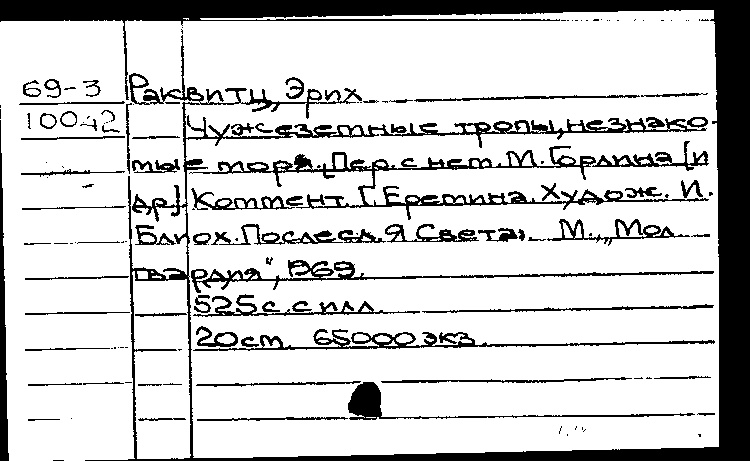 69-3 Раквитц, Эрих
10042 Чужеземные тропы, незнако-
мые моря. [Пер. с нем. М. Горлина [и
др.] Коммент. Г. Еремина. Худож. И.
Блиох. Послесл. Я Света). М., „Мол
гвардия", 1969.
525 с. с илл.
20 см. 65000 экз.